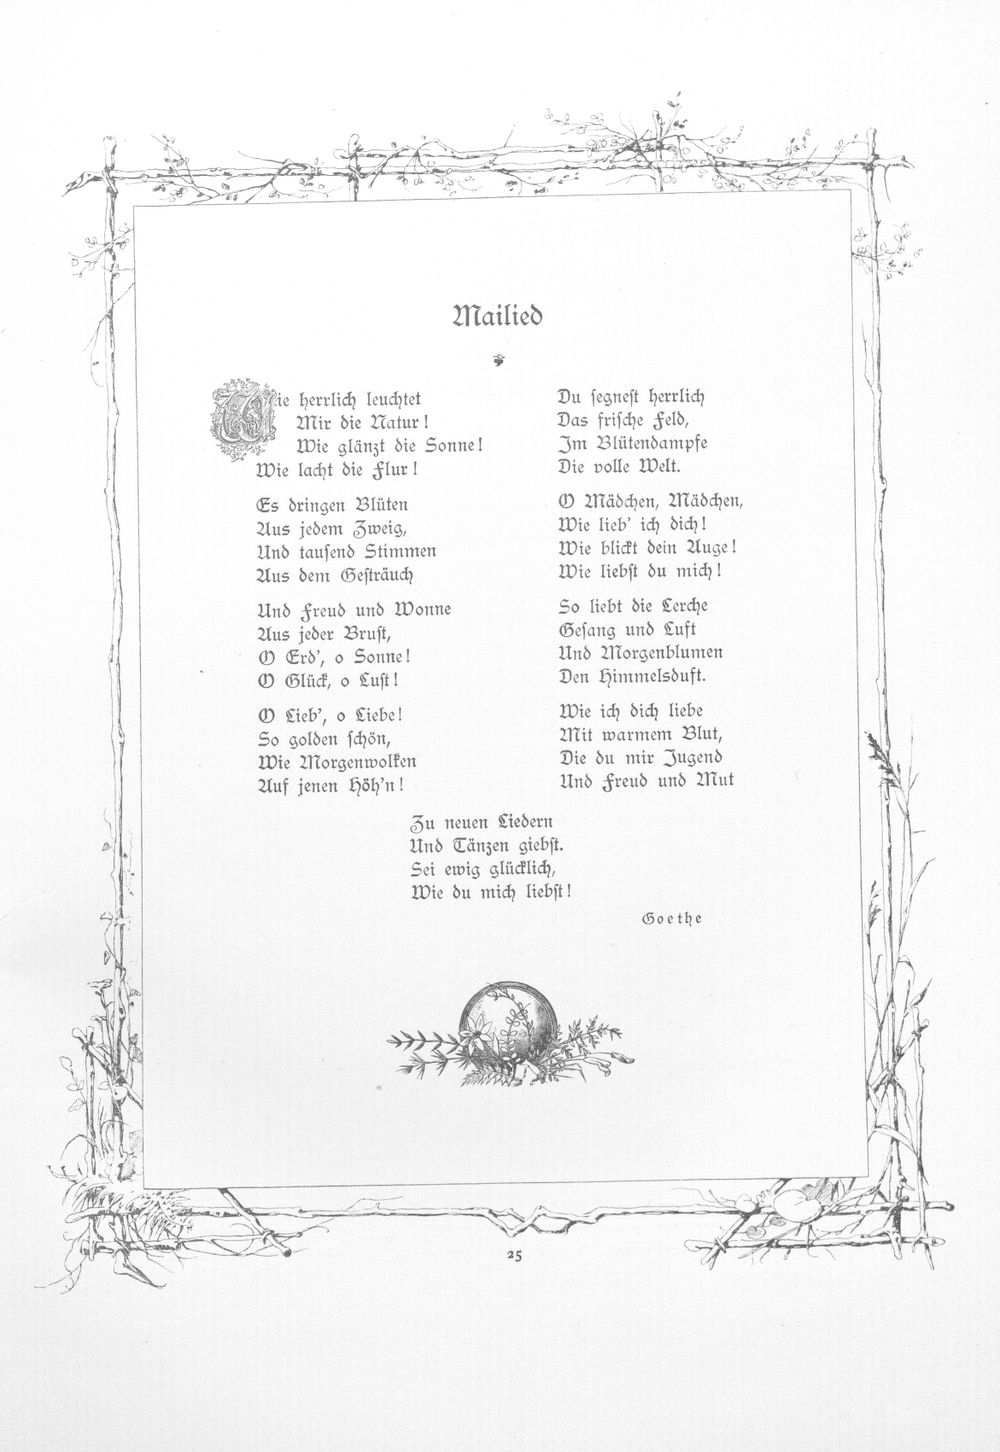 Mailied
Wie herrlich leuchtet
Mir die Natur!
Wie glänzt die Sonne!
Wie lacht die Flur!
Es dringen Blüten
Aus jedem Zweig,
Und tausend Stimmen
Aus dem Gesträuch
Und Freud und Wonne
Aus jeder Brust,
O Erd', o Sonne!
O Glück, o Lust!
O Lieb', o Liebe!
So golden schön,
Wie Morgenwolken
Auf jenen Höh'n!
Du segnest herrlich
Das frische Feld,
Im Blütendampfe
Die volle Welt.
O Mädchen, Mädchen,
Wie lieb' ich dich!
Wie blickt dein Auge!
Wie liebst du mich!
So liebt die Lerche
Gesang und Luft
Und Morgenblumen
Den Himmelsduft.
Wie ich dich liebe
Mit warmem Blut,
Die du mir Jugend
Und Freud und Mut
Zu neuen Liedern
Und Tänzen giebst.
Sei ewig glücklich,
Wie du mich liebst!
Goethe
25